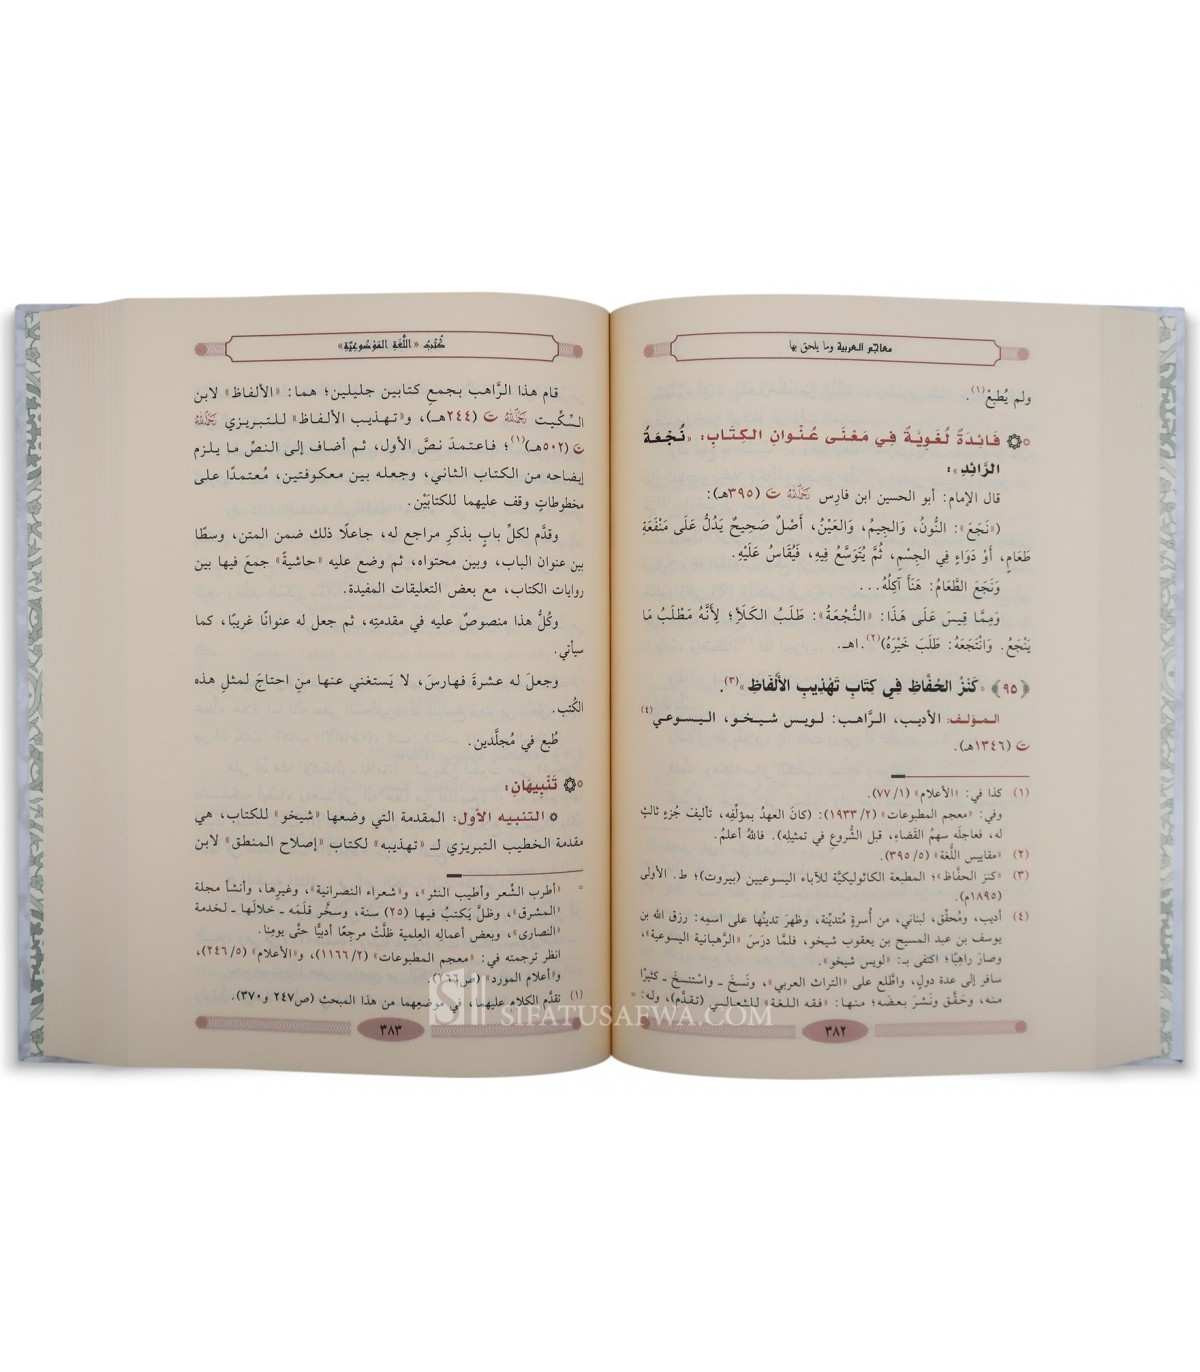 معاجم العربية وما يلحق بها
ولم يُطبعْ(١).
فَائِدَةٌ لُغَوِيَّةٌ فِي مَعْنَى عُنْوَانِ الكِتَابِ: «نُجْعَةُ
الرَّائِدِ»:
قال الإمام: أبو الحسين ابن فارس رَحِمَهُ اللَّهُ ت (٣٩٥هـ):
(«نَجَعَ»: النُّونُ، وَالجِيمُ، وَالعَيْنُ، أَصْلٌ صَحِيحٌ يَدُلُّ عَلَى مَنْفَعَةِ
طَعَامٍ، أَوْ دَوَاءٍ فِي الجِسْمِ، ثُمَّ يُتَوَسَّعُ فِيهِ، فَيُقَاسُ عَلَيْهِ.
وَنَجَعَ الطَّعَامُ: هَنَأَ آكِلُهُ...
وَمِمَّا قِيسَ عَلَى هَذَا: «النُّجْعَةُ»: طَلَبُ الكَلَأِ؛ لِأَنَّهُ مَطْلَبُ مَا
يَنْجَعُ. وَانْتَجَعَهُ: طَلَبَ خَيْرَهُ)(٢).اهـ.
(٩٥) «كَنْزُ الحُفَّاظِ فِي كِتَابِ تَهْذِيبِ الأَلْفَاظِ»(٣).
المؤلف: الأديب، الرَّاهب: لويس شيخو، اليسوعي(٤)
ت (١٣٤٦هـ).
(١) كذا في: «الأعلام» (١/ ٧٧).
وفي: «معجم المطبوعات» (٢/ ١٩٣٣): (كانَ العهدُ بمؤلِّفِه، تأليفَ جُزءٍ ثالثٍ
له، فعاجلَه سهمُ القَضاءِ، قبل الشُّروع في تمثيلِه). فاللهُ أعلمُ.
(٢) «مقاييس اللُّغة» (٥/ ٣٩٥).
(٣) «كنز الحفاظ»؛ المطبعة الكاثوليكيَّة للآباء اليسوعيين (بيروت)؛ ط. الأولى
(١٨٩٥م).
(٤) أديب، ومُحقِّق، لبناني، من أُسرةٍ مُتديِّنة، وظهرَ تديُّنها على اسمِه: رزق الله بن
يوسف بن عبد المسيح بن يعقوب شيخو، فلمَّا درَسَ «الرَّهبانية اليسوعية»،
وصارَ راهِبًا؛ اكتفى بـ: «لويس شيخو».
سافر إلى عدة دولٍ، واطَّلع على «التراث العربي»، ونَسخَ ـ واسْتنسخَ ـ كثيرًا
منه، وحَقَّق ونَشرَ بعضَه؛ منها: «فقه اللغة» للثعالبي (تقدَّم)، وله: =
٣٨٢
كُتُبُ «اللُّغَةِ المَوْضُوعِيَّةِ»
قام هذا الرَّاهب بجمعِ كتابين جليلين؛ هما: «الألفاظ» لابن
السِّكِّيت رَحِمَهُ اللَّهُ ت (٢٤٤هـ)، و«تهذيب الألفاظ» للتبريزي رَحِمَهُ اللَّهُ
ت (٥٠٢هـ)(١)؛ فاعتمدَ نصَّ الأول، ثم أضاف إلى النصِّ ما يلزم
إيضاحه من الكتاب الثاني، وجعله بين معكوفتين، مُعتمدًا على
مخطوطاتٍ وقف عليهما للكتابَيْن.
وقدَّم لكلِّ بابٍ بذكرِ مراجع له، جاعلًا ذلك ضمن المتن، وسطًا
بين عنوان الباب، وبين محتواه، ثم وضع عليه «حاشيةً» جمعَ فيها بين
روايات الكتاب، مع بعض التعليقات المفيدة.
وكُلُّ هذا منصوصٌ عليه في مقدمتِه، ثم جعل له عنوانًا غريبًا، كما
سيأتي.
وجعلَ له عشرةَ فهارسَ، لا يَستغني عنها منِ احتاجَ لمثلِ هذه
الكُتب.
طُبع في مُجلَّدين.
تَنْبِيهَانِ:
التنبيه الأول: المقدمة التي وضعها «شيخو» للكتاب، هي
مقدمة الخطيب التبريزي لـ «تهذيبه» لكتاب «إصلاح المنطق» لابن
= «أطرب الشِّعر وأطيب النثر»، و«شعراء النصرانية»، وغيرها، وأنشأ مجلة
«المشرق»، وظلَّ يَكتبُ فيها (٢٥) سنة، وسخَّر قلَمَه ـ خلالَها ـ لخدمة
«النصارى»، وبعض أعمالِه العِلمية ظلَّتْ مرجعًا أدبيًّا حتَّى يومِنا.
انظر ترجمته في: «معجم المطبوعات» (٢/ ١١٦٦)، و«الأعلام» (٥/ ٢٤٦)،
و«أعلام المورد»
(١) تقدَّم الكلام عليهما، في موضعِهما من هذا المبحث (ص٢٤٧ و٣٧٠).
٣٨٣
SIFATUSAFWA.COM